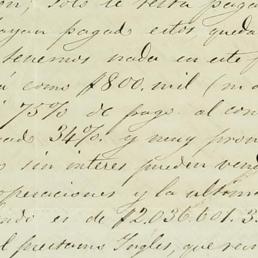 solo le resta paga
hayan pagado estos, queda
tenemos nada en este
como $800. mil (m
75% de pago al con
34% y muy pron
sin interes pueden vend
operaciones y la ultima
es de $2.036.601.3
prestamo Ingles, que